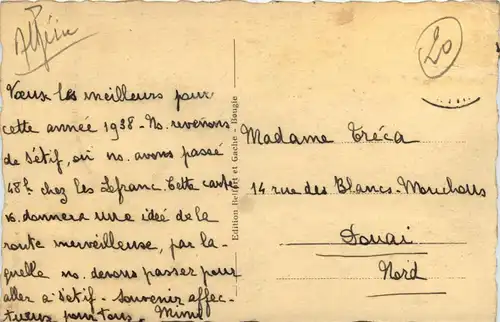 Algérie
20
Vœux les meilleurs pour
cette année 1938 - No. revenons
de Sétif, où no. avons passé
48h chez les Lefranc. Cette carte
v. donnera une idée de la
route merveilleuse, par la-
quelle no. devons passer pour
aller à Sétif - Souvenir affec-
tueux pour tous - Mimi
Edition Belfort et Gache - Bougie
Madame Tréca
14 rue des Blancs-Mouchons
Douai
Nord